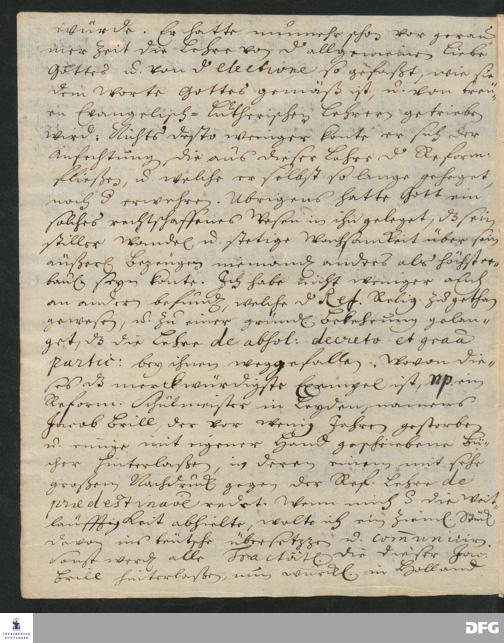 würde. Er hatte nunmehr schon vor gerau-
mer Zeit die Lehre von d' allgemeinen Liebe
Gottes u. von d' electione so gefaßt, wie sie
dem Worte Gottes gemäß ist, u. von treu-
en Evangelisch-Lutherischen Lehrern getrieben
wird: Nichts desto weniger konte er sich der
Anfechtung, die aus dieser Lehre d' Reform.
fließen, u. welche er selbst so lange geheget,
noch erwehren. Übrigens hatte Gott ein
solches rechtschaffenes Wesen in ihn geleget, dß sein
stiller Wandel u. stetige Wachsamkeit über sein
äußeres Bezeugen niemand anders als höchst er-
baul. seyn konte. Ich habe nicht weniger auch
an andern befunden, welche d' Ref. Relig. zugethan
gewesen, u. zu einer gründl. Bekehrung gelan-
get, dß die Lehre de absol: decreto et gratia
partic: bey ihnen weggefallen. Wovon die-
ses dß merckwürdigste Exempel ist, np. ein
Reform. Schulmeister in Leyden, namens
Jacob Brill, der vor wenig Jahren gestorben
u. einige mit eigener Hand geschriebene Bü-
cher hinterlaßen, in deren einem mit sehr
großem Nachdruck gegen der Ref. Lehre de
praedestinatione redet. Wenn mich die Weit-
läufftigkeit abhielte, wolte ich ein Stück
davon ins teutsche übersetzen u. communicir.
Sonst werden alle Tractätl. die dieser Jac.
Brill hinterlaßen, nun in Holland
FRANCKESCHE
STIFTUNGEN
DFG